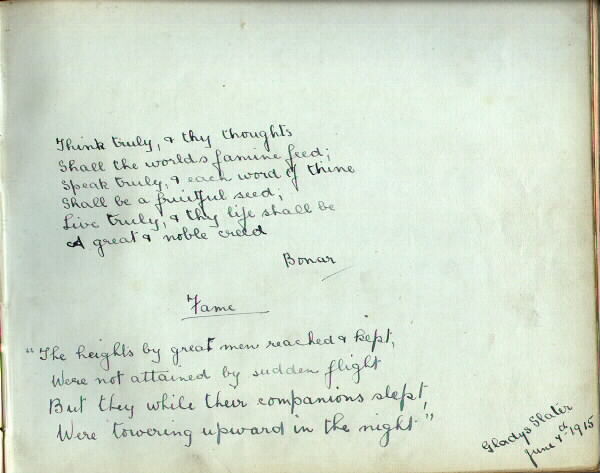 Think truly, & thy thoughts
Shall the worlds famine feed;
Speak truly, & each word of thine
Shall be a fruitful seed;
Live truly, & thy life shall be
A great & noble creed
Bonar
Fame
"The heights by great men reached & kept,
Were not attained by sudden flight
But they while their companions slept,
Were towering upward in the night."
Gladys Slater
June 4th 1915